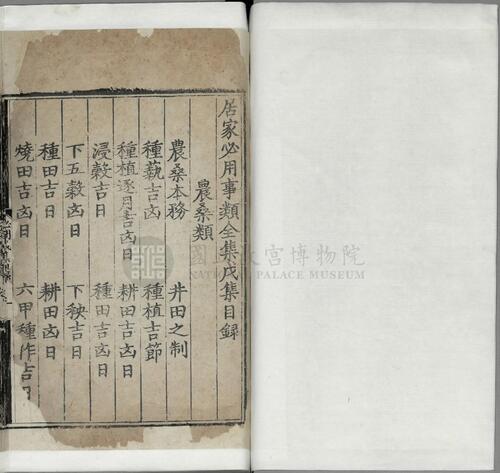 居家必用事類全集戊集目録
農桑類
農桑本務 井田之制
種蓺吉凶 種植吉節
種植逐月吉凶日 耕田吉凶日
浸穀吉日 種田吉凶日
下五穀凶日 下秧吉日
種田吉日 耕田凶日
燒田吉凶日 六甲種作吉日
NATIONAL PALACE MUSEUM